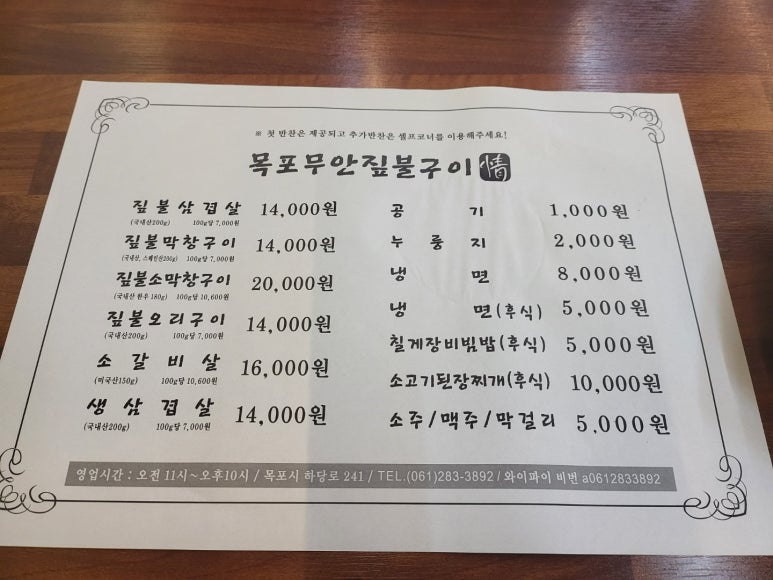 ※ 첫 반찬은 제공되고 추가반찬은 셀프코너를 이용해주세요!
목포무안짚불구이 情
짚불삼겹살 14,000원
(국내산200g) 100g당 7,000원
짚불막창구이 14,000원
(국내산, 스페인산200g) 100g당 7,000원
짚불소막창구이 20,000원
(국내산 한우 180g) 100g당 10,600원
짚불오리구이 14,000원
(국내산200g) 100g당 7,000원
소갈비살 16,000원
(미국산150g) 100g당 10,600원
생삼겹살 14,000원
(국내산200g) 100g당 7,000원
공기 1,000원
누룽지 2,000원
냉면 8,000원
냉면(후식) 5,000원
칠게장비빔밥(후식) 5,000원
소고기된장찌개(후식) 10,000원
소주/맥주/막걸리 5,000원
영업시간 : 오전 11시~오후10시 / 목포시 하당로 241 / TEL.(061)283-3892 / 와이파이 비번 a0612833892